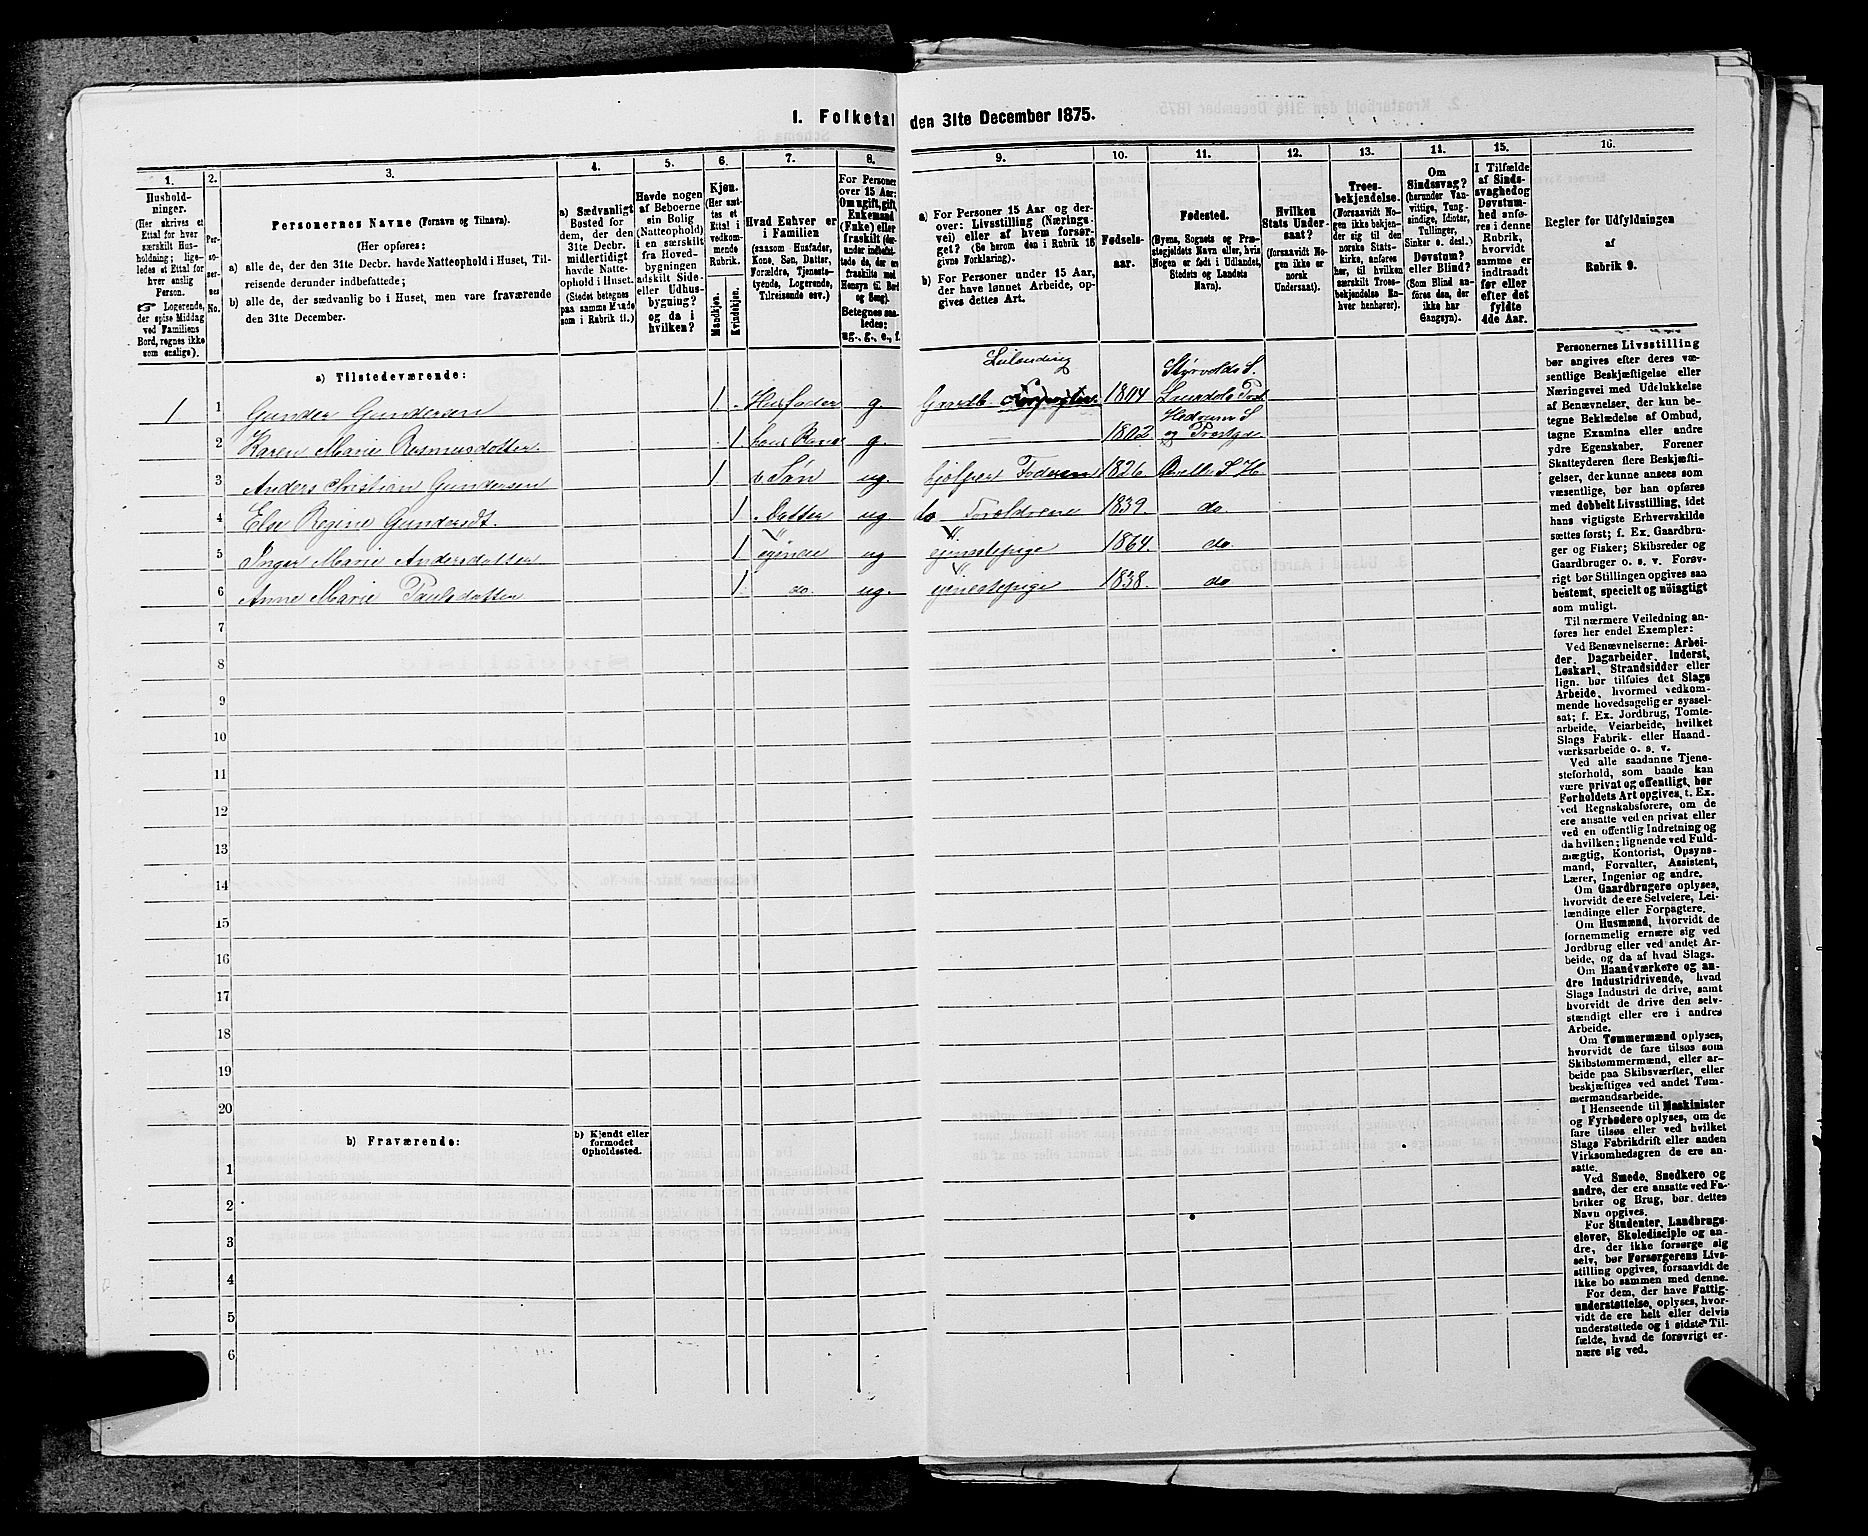 I. Folketal den 31te December 1875.
1.
Hushold-
ninger.
(Her skrives et
Ettal for hver
særskilt Hus-
holdning; lige-
ledes et Ettal for
hver enslig
Person.
☞ Logerende,
der spise Middag
ved Familiens
Bord, regnes ikke
som enslige).
2.
Per-
so-
ner-
nes
No.
3.
Personernes Navne (Fornavn og Tilnavn).
(Her opføres:
a) alle de, der den 31te Decbr. havde Natteophold i Huset, Til-
reisende derunder indbefattede;
b) alle de, der sædvanlig bo i Huset, men vare fraværende
den 31te December.
4.
a) Sædvanligt
Bosted for
dem, der den
31te Decbr.
midlertidigt
havde Natte-
ophold i Huset.
(Stedet betegnes
paa samme Maade
som i Rubrik 11.)
5.
Havde nogen
af Beboerne
sin Bolig
(Natteophold)
i en særskilt
fra Hoved-
bygningen
adskilt Side-
eller Udhus-
bygning?
og da i
hvilken?
6.
Kjøn.
(Her sæt-
tes et
Ettal i
vedkom-
mende
Rubrik.
Mandkjøn.
Kvindekjøn.
7.
Hvad Enhver er
i Familien
(saasom Husfader,
Kone, Søn, Datter,
Forældre, Tjeneste-
tyende, Logerende,
Tilreisende osv.)
8.
For Personer
over 15 Aar:
Om ugift, gift,
Enkemand
(Enke) eller
fraskilt
Betegnes saa-
ledes:
ug., g., e., f.
9.
a) For Personer 15 Aar og der-
over: Livsstilling (Nærings-
vei) eller af hvem forsør-
get? (Se herom den i Rubrik 16
givne Forklaring).
b) For Personer under 15 Aar,
der have lønnet Arbeide, op-
gives dettes Art.
10.
Fødsels-
aar.
11.
Fødested.
(Byens, Sognets og Præ-
stegjeldets Navn eller, hvis
Nogen er født i Udlandet,
Stedets og Landets
Navn).
12.
Hvilken
Stats Under-
saat?
(forsaavidt No-
gen ikke er
norsk
Undersaat).
13.
Troes-
bekjendelse.
(Forsaavidt No-
gen ikke bekjen-
der sig til den
norske Stats-
kirke, anføres
her, til hvilken
særskilt Troes-
bekjendelse En-
hver henhører).
Om
Sindssvag?
(herunder Van-
vittige, Tung-
sindige, Idioter,
Tullinger,
Sinker o. desl.)
Døvstum?
eller Blind?
(Som Blind an-
føres den, der
ikke har
Gangsyn).
15.
I Tilfælde
af Sinds-
svaghed og
Døvstum-
hed anfø-
res i denne
Rubrik,
hvorvidt
samme er
indtraadt
før eller
efter det
fyldte
4de Aar.
16.
Regler for Udfyldningen
af
Rubrik 9.
a) Tilstedeværende:
1 1 Gunder Gundersen 1 Husfader g Gaardb. Leilending 1804
2 Karen Marie Rasmusdatter 1 hans Kone g. 1802
3 Anders Christian Gundersen 1 Søn ug. hjelper Faderen 1826
4 Else Regine Gundersdt. 1 Datter ug. do Forældrene 1839 do
5 Inger Marie Andersdatter 1 ug 1864. do
6 Anne Marie Paulsdatter 1 do. ug. 1838. do
7
8
9
10
11
12
13
14
15
16
17
18
19
20
b) Fraværende:
b) Kjendt eller
formodet
Opholdssted.
1
2
3
4
5
6
Personernes Livsstilling
bør angives efter deres væ-
sentlige Beskjæftigelse eller
Næringsvei med Udelukkelse
af Benævnelser, der kun be-
tegne Beklædelse af Ombud,
tagne Examina eller andre
ydre Egenskaber. Forener
Skatteyderen flere Beskjæfti-
gelser, der kunne ansees som
væsentlige, bør han opføres
med dobbelt Livsstilling, idet
hans vigtigste Erhvervskilde
sættes først; f. Ex. Gaardbru-
ger og Fisker; Skibsreder og
Gaardbruger o. s. v. Forøv-
rigt bør Stillingen opgives saa
bestemt, specielt og nøiagtigt
som muligt.
Til nærmere Veiledning an-
føres her endel Exempler:
Ved Benævnelserne: Arbei-
der, Dagarbeider, Inderst,
Løskarl, Strandsidder eller
lign. bør tilføies det Slags
Arbeide, hvormed vedkom-
mende hovedsagelig er syssel-
sat; f. Ex. Jordbrug, Tomte-
arbeide, Veiarbeide, hvilket
Slags Fabrik- eller Haand-
værksarbeide o. s. v.
Ved alle saadanne Tjene-
steforhold, som baade kan
være privat og offentligt, bør
Forholdets Art opgives, t. Ex.
ved Regnskabsførere, om de
ere ansatte ved en privat eller
ved en offentlig Indretning og
da hvilken; lignende ved Fuld-
mægtig, Kontorist, Opsyns-
mand, Forvalter, Assistent,
Lærer, Ingeniør og andre.
Om Gaardbrugere oplyses,
hvorvidt de ere Selveiere, Lei-
lændinge eller Forpagtere.
Om Husmænd, hvorvidt de
fornemmelig ernære sig ved
Jordbrug eller ved andet Ar-
beide, og da af hvad Slags.
Om Haandværkere og an-
dre Industridrivende, hvad
Slags Industri de drive, samt
hvorvidt de drive den selv-
stændigt eller ere i andres
Arbeide.
Om Tømmermænd oplyses,
hvorvidt de fare tilsøs som
Skibstømmermænd, eller ar-
beide paa Skibsværfter, eller
beskjæftiges ved andet Tøm-
mermandsarbeide.
I Henseende til Maskinister
og Fyrbødere oplyses, om de
fare tilsøs eller ved hvilket
Slags Fabrikdrift eller anden
Virksomhedsgren de ere an-
satte.
Ved Smede, Snedkere og
andre, der ere ansatte ved Fa-
briker og Brug, bør dettes
Navn opgives.
For Studenter, Landbrugs-
elever, Skoledisciple og an-
dre, der ikke forsørge sig
selv, bør Forsørgerens Livs-
stilling opgives, forsaavidt de
ikke bo sammen med denne.
For dem, der have Fattig-
understøttelse, oplyses, hvor-
vidt de ere helt eller delvis
understøttede og i sidste Til-
fælde, hvad de forøvrigt er-
nære sig ved.